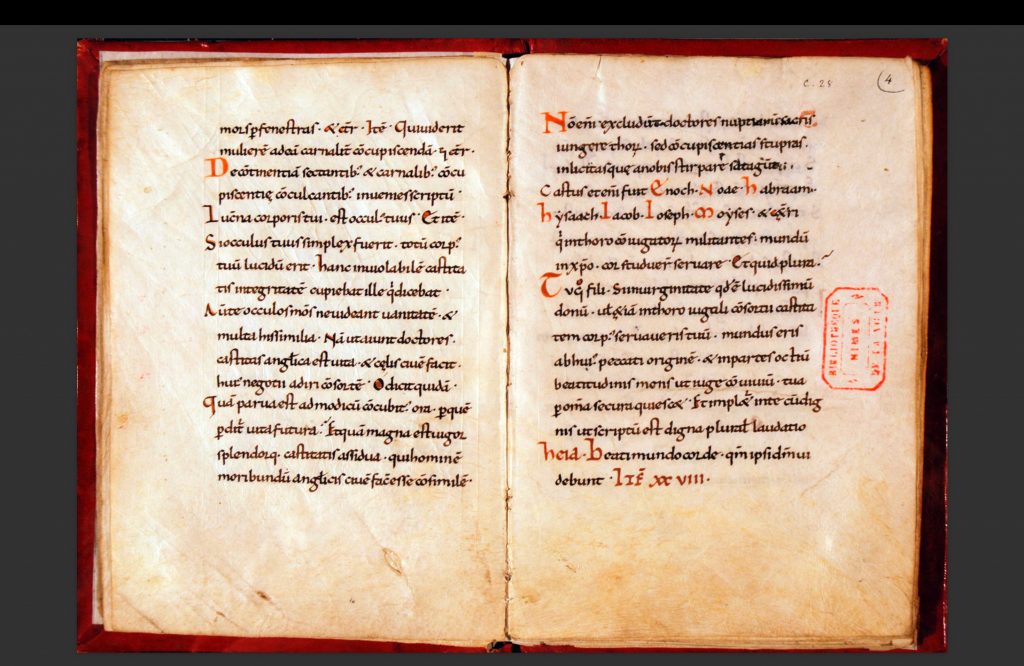 mors p fenestras · & cēr · Itē · Qui uiderit
mulierē ad eā carnalit̄ cōcupiscendā · & cēr ·
De cōtinentiā sectantib; & carnalib; cōcu
piscentię cōculcantib; inuenies scriptū ·
Lucn̄a corporis tui · est occul; tuus · Et itē ·
Si occulus tuus simplex fuerit · totū corp;
tuū lucidū erit · hanc inuiolabilē castita
tis integritatē cupiebat ille q̄ dicebat ·
Aūte occulos mōs ne uideant uanitatē · &
multa his similia · Nā ut aiunt doctores ·
castitas anglica est uita · & celis ciuē facit ·
hui; negotii consortē · O dicit quidā ·
Quā parua est ad modicū cōcubit; ora · p quē
pdit̄ uita futura · Et quā magna est uigor
splendorq · castitatis assidua · qui hominē
moribundū anglicis ciuē fac esse cōsimilē ·
c. 28
4
Nō enī excludūt doctores nuptiarū sacris
iungere thorū · sed cōcupiscentias stupras ·
inlicitasque a nobis stirpare satagunt ·
Castus etenī fuit Enoch · Noae · habraam ·
hysaach · Iacob · Ioseph · Moyses · & cetri
q̄ in thoro cōiugatorū militantes · mundū
in xp̄o · cor studuer̄ seruare · Et quid plura ·
Tu q̊ fili · Si in uirginitate qd̄ ē lucidissimū
donū · ul & iā in thoro iugali cōsortii castita
tem corp; seruaueris tuū · mundus eris
ab hui; peccati originē · & in partes octū
beatitudinis mens ut iuge cōuiuiū · tua
p om̄a secura quiesc& · Et impl& in te cū dig
nis ut scriptū est digna plurial laudatio
heia · Beati mundo corde · qm̄ ipsi dm̄ ui
debunt · ITĒ XXVIII ·
BIBLIOTHEQUE
NIMES
DE LA VILLE